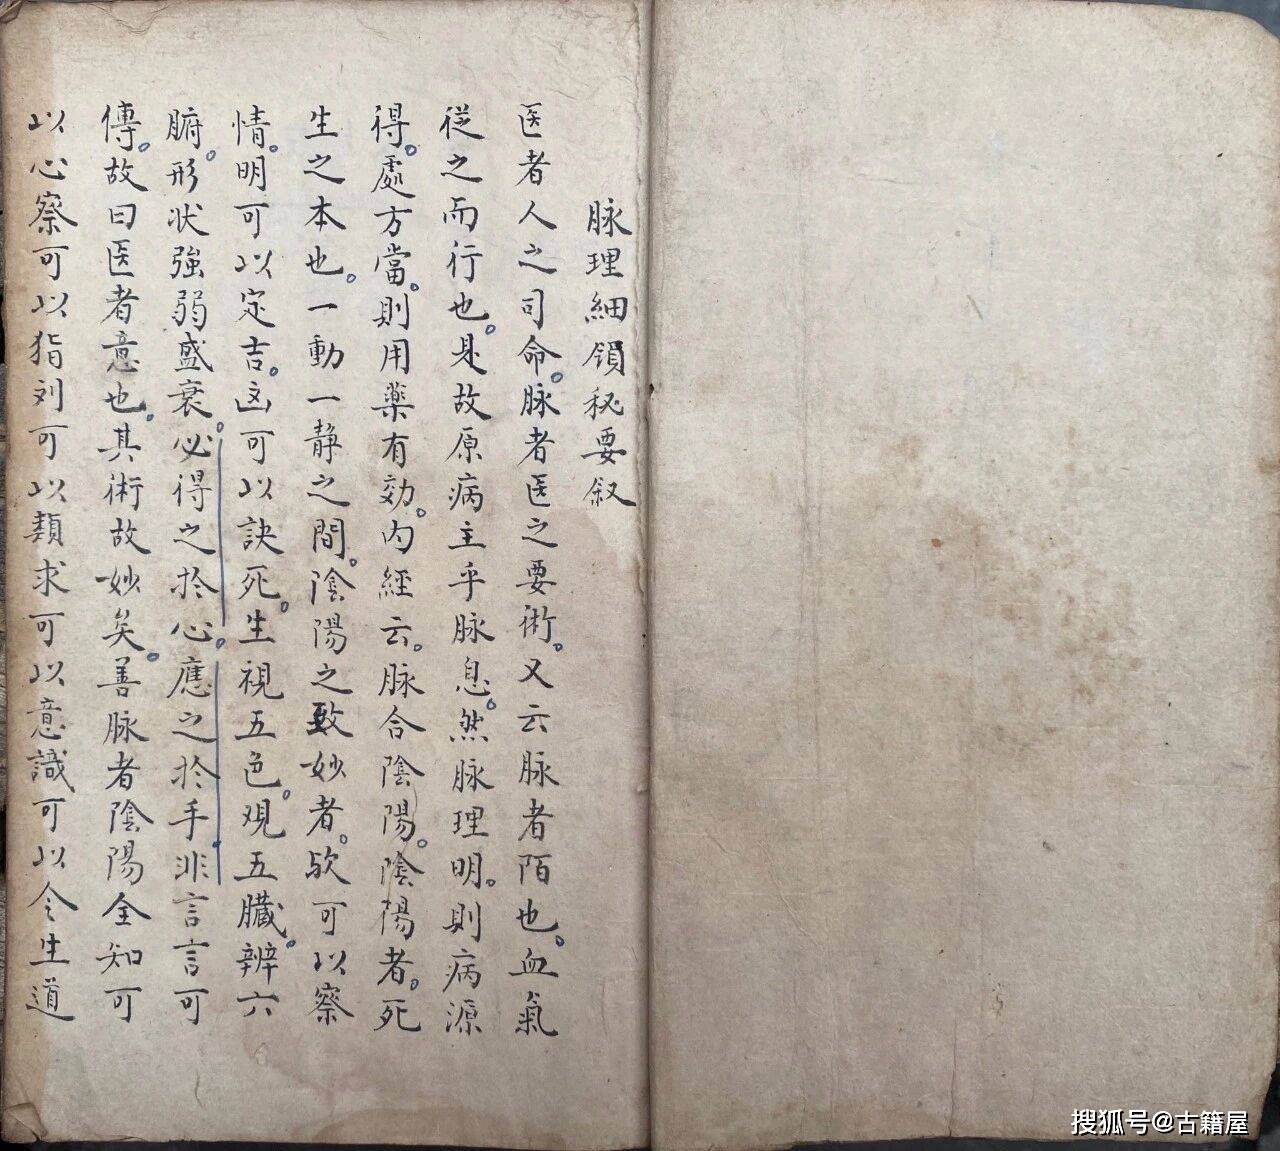 脉理細領秘要叙
医者人之司命。脉者医之要術。又云脉者陌也。血氣
從之而行也。是故原病主乎脉息。然脉理明。則病源
得。處方當。則用藥有効。内經云。脉合陰陽。陰陽者。死
生之本也。一動一靜之間。陰陽之致妙者。欤可以察
情。明可以定吉。凶可以訣死。生視五色。观五臓。辨六
腑。形状強弱盛衰。必得之於心。應之於手。非言言可
傳。故曰医者意也。其術故妙矣。善脉者陰陽全知可
以心察可以指列可以類求可以意識可以令生道
搜狐号@古籍屋